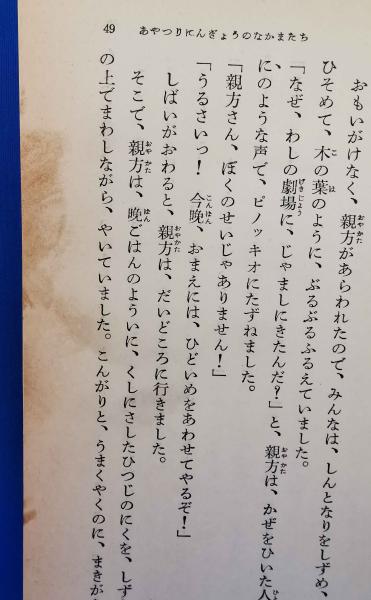 49 あやつりにんぎょうのなかまたち
おもいがけなく、親方があらわれたので、みんなは、しんとなりをしずめ、
ひそめて、木の葉のように、ぶるぶるふるえていました。
「なぜ、わしの劇場に、じゃましにきたんだ？」と、親方は、かぜをひいた人
にのような声で、ピノッキオにたずねました。
「親方さん、ぼくのせいじゃありません！」
「うるさいっ！　今晩、おまえには、ひどいめをあわせてやるぞ！」
しばいがおわると、親方は、だいどころに行きました。
そこで、親方は、晩ごはんのよういに、くしにさしたひつじのにくを、しず
の上でまわしながら、やいていました。こんがりと、うまくやくのに、まきが